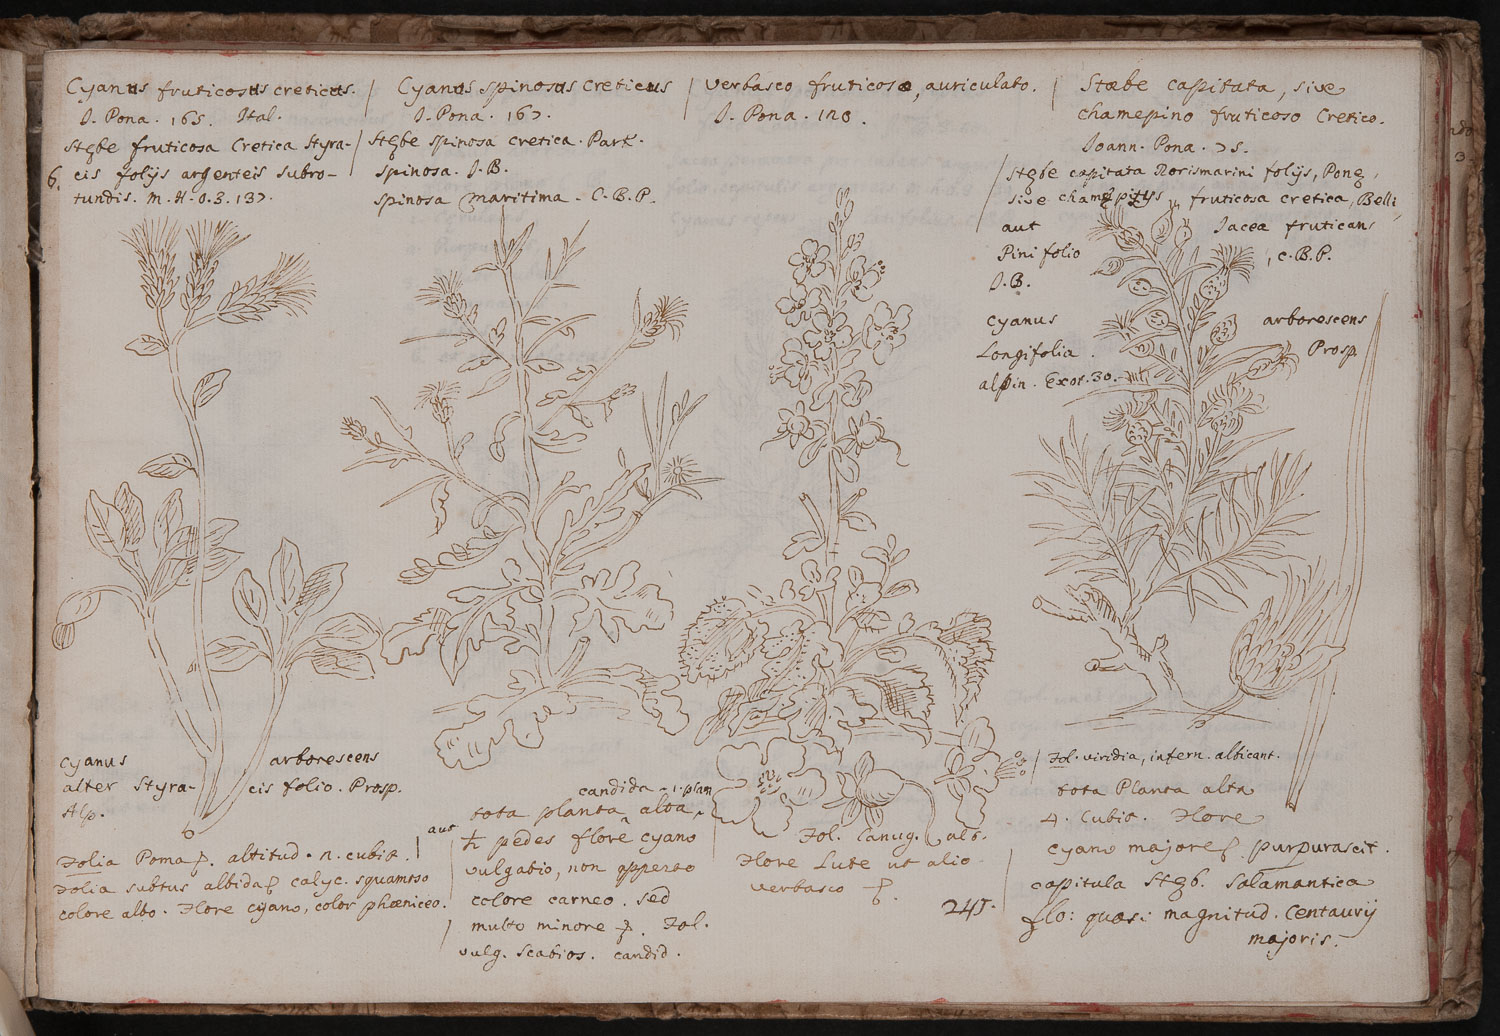 Cyanus fruticosus creticus.
J. Pona. 165. Ital.
Stębe fruticosa Cretica Styra-
6. cis folijs argenteis subro-
tundis. M. H. 0.3.137.
Cyanus spinosus Creticus
J. Pona. 167.
Stębe spinosa cretica. Park.
spinosa. J.B.
spinosa maritima. C.B.P.
Verbasco fruticoso, auriculato.
J. Pona. 120.
Stæbe capitata, sive
chamepino fruticoso Cretico.
Joann. Pona. 75.
Stębe capitata Rorismarini folijs, Ponę,
sive chamępitys fruticosa cretica, Belli,
aut Jacea fruticans
Pini folio, C.B.P.
J.B.
Cyanus arborescens
Longifolia. Prosp.
alpin. Exot. 30.
Cyanus arborescens
alter Styra- cis folio. Prosp.
Alp.
Folia Poma altitud. n. cubit.
Folia subtus albida calyc. squamoso
colore albo. Flore cyano, color phœniceo.
candida
tota planta alba,
aut
pedes flore cyano
vulgatio, non
colore carneo. sed
multo minore. Fol.
vulg. Scabios. candid.
Fol. Lanug. alb.
Flore Lute ut alio
verbasco
245.
Fol. viridia, infern. albicant.
tota Planta alta
4. Cubit. Flore
cyano majore purpurascit.
capitula Stęb. Salamantica
flo: quasi magnitud. Centaurij
majoris.